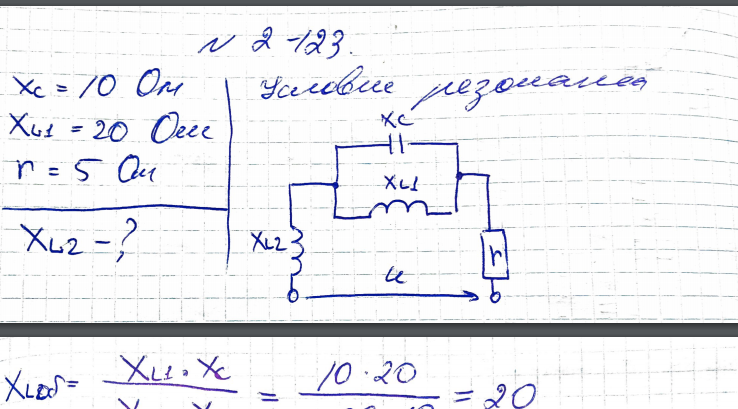 N 2-123.
Xc = 10 Ом
XL1 = 20 Ом
r = 5 Ом
XL2 - ?
Условие резонанса
Xc
XL1
XL2
r
u
XLоб = XL1 · Xc = 10 · 20 = 20